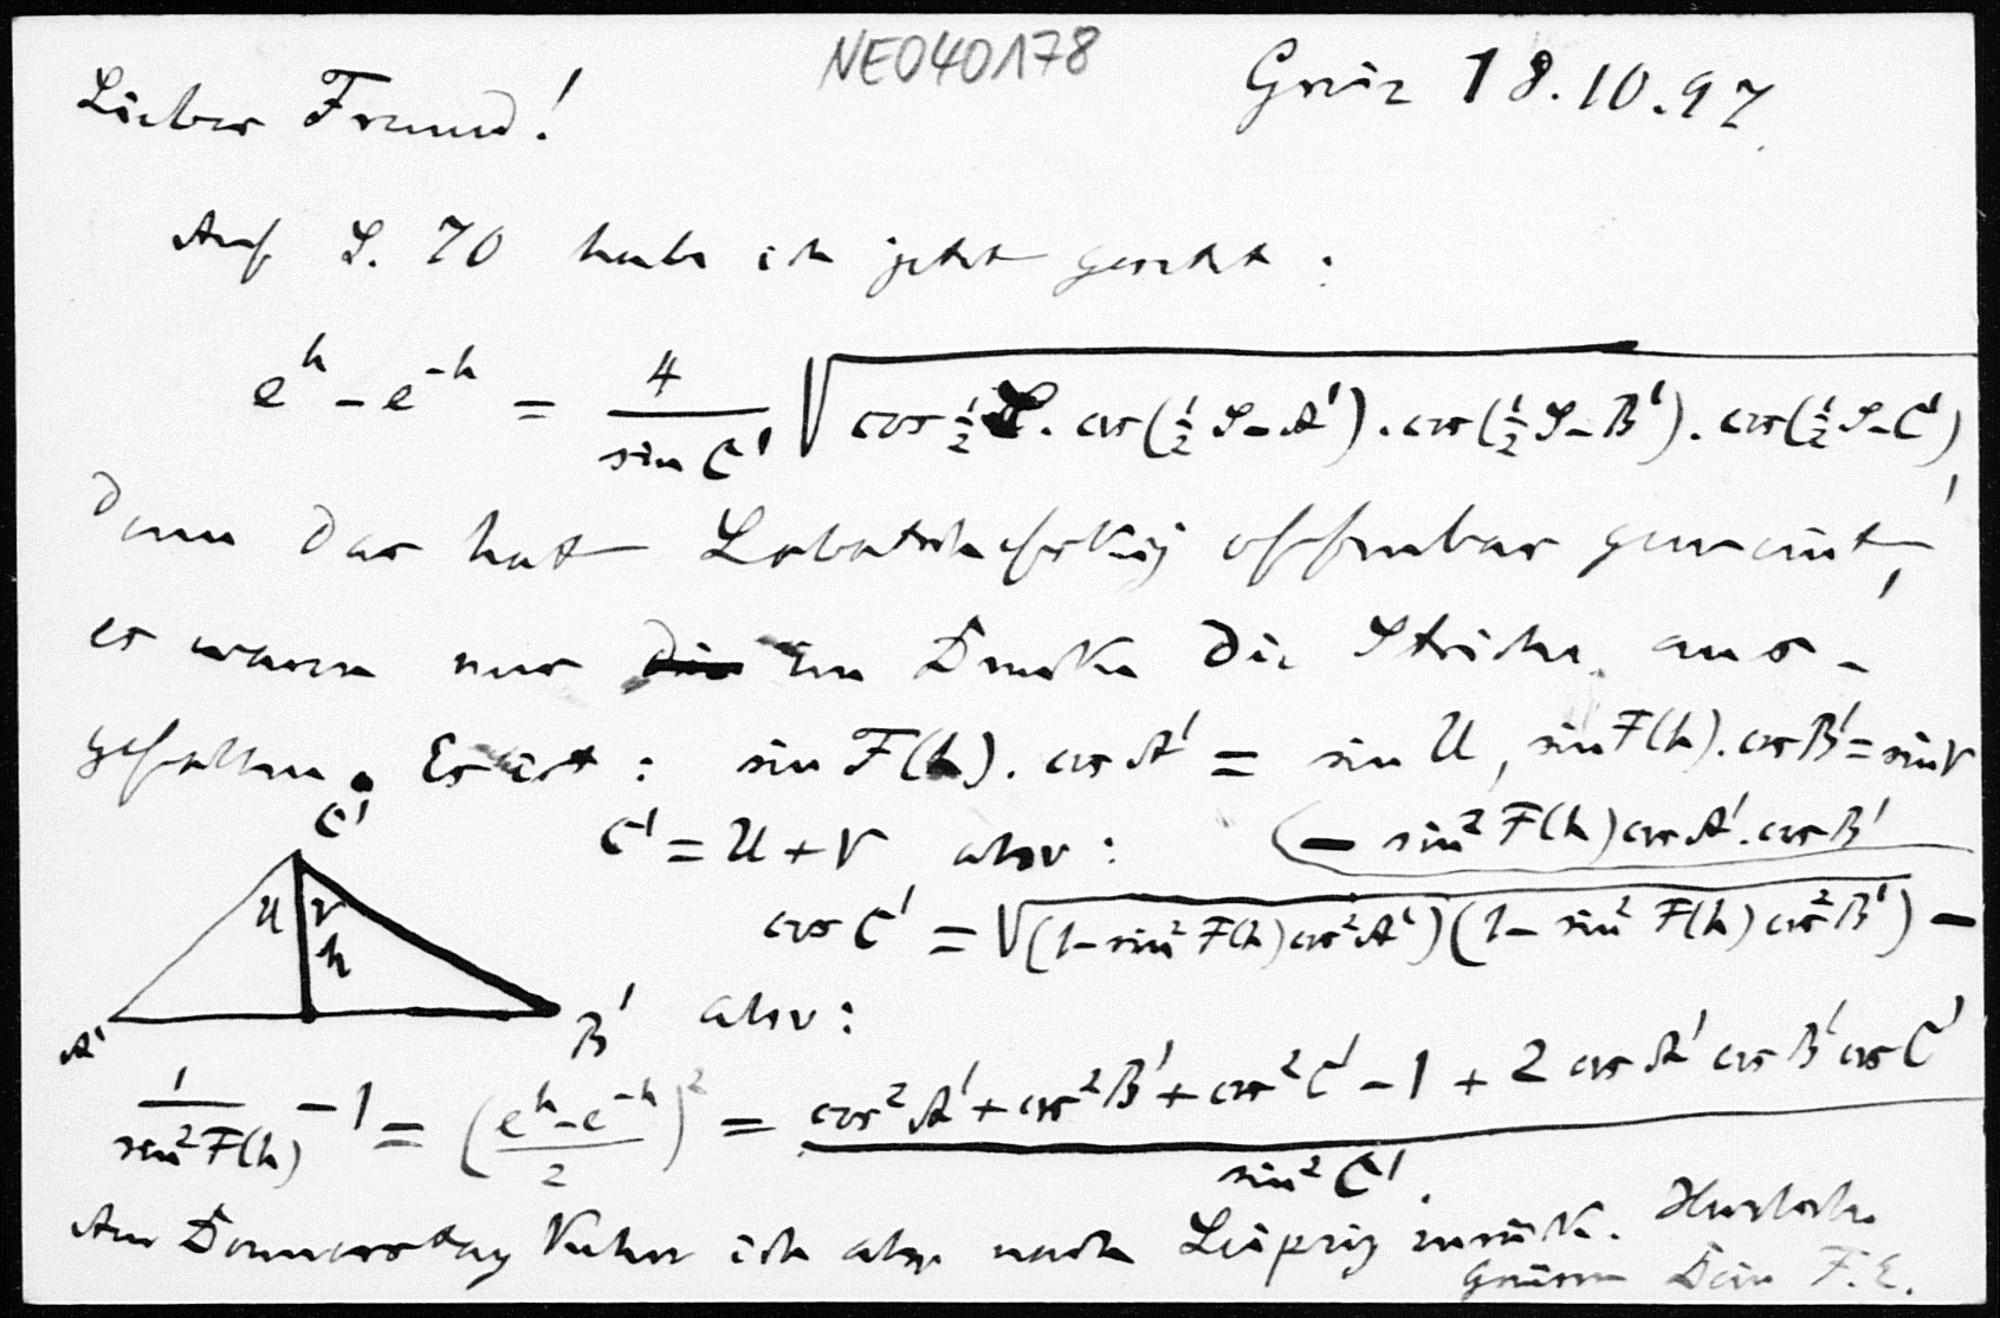 NEO40178
Greiz 18.10.97.
Lieber Freund!
Auf S. 70 habe ich jetzt gesetzt:
e^h - e^{-h} = 4/sin C' √(cos ½S. cos(½S-A').cos(½S-B').cos(½S-C')),
denn das hat Lobatschefskij offenbar gemeint,
es waren nur die im Drucke die Striche aus-
gefallen. Es ist: sin F(h). cos A' = sin U, sin F(h). cos B' = sin V
C'
C' = U + V also: (- sin² F(h) cos A'. cos B'
U V
h
cos C' = √((1 - sin² F(h) cos² A')(1 - sin² F(h) cos² B')) -
A' B' also:
1/(sin² F(h)) - 1 = ((e^h - e^{-h})/2)² = (cos² A' + cos² B' + cos² C' - 1 + 2 cos A' cos B' cos C')/(sin² C').
Am Donnerstag kehre ich nach Leipzig zurück. Herzliche
Grüsse Dein F. E.